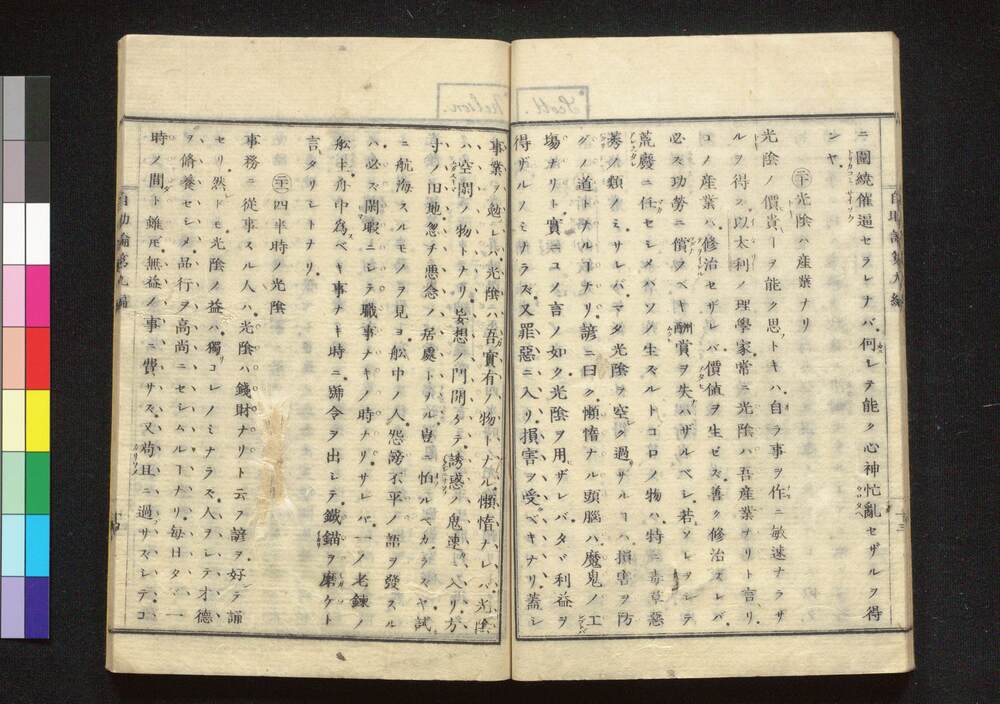 ニ圍繞催逼セラレナバ何レテ能ク心神忙亂セザルヲ得
ンヤ
二十 光陰ハ産業ナリ
光陰ノ價貴キヿヲ能ク思トキハ自ラ事ヲ作ニ敏速ナラザ
ルヲ得ズ以太利ノ理學家常ニ光陰ハ吾産業ナリト言リ
コノ産業ハ修治セザレバ價値ヲ生ゼズ善ク修治スレバ
必ス功勞ニ償フベキ酬賞ヲ失ハザルベシ若ソレヲシテ
荒廢ニ任セシメバソノ生ズルトコロノ物ハ特ニ毒草惡
莠ノ類ノミサレバマタ光陰ヲ空ク過サルヿハ損害ヲ防
グノ道トナルヿナリ諺ニ曰ク懶惰ナル頭腦ハ魔鬼ノ工
塲ナリト實ニコノ言ノ如ク光陰ヲ用ザレバタヾ利益ヲ
得ザルノミナラズ又罪惡ニ入リ損害ヲ受ベキナリ蓋シ
自助論第九編
十三
Scott.
事業ヲ勉レバ光陰ハ吾實有ノ物トナル懶惰ナレバ光陰
ハ空閒ノ物トナリ妄想ノ門開ケテ誘惑ノ鬼連リニ入リ方
寸ノ田地忽チ悪念ノ居處トナル豈怕ルベカラズヤ試
ニ航海スルモノヲ見ヨ舩中ノ人怨謗不平ノ語ヲ發スル
ハ必ズ閑暇ニシテ職事ナキノ時ナリサレバ一ノ老錬ノ
舩主舟中爲ベキ事ナキ時ニ號令ヲ出シテ鐵錨ヲ磨ケト
言タリシトナリ
二十一 四半時ノ光陰
事務ニ從事スル人ハ光陰ハ錢財ナリト云フ諺ヲ好テ誦
セリ然ドモ光陰ノ益ハ獨リコレノミナラズ人ヲシテ才德
ヲ脩養セシメ品行ヲ高尚ニセシムルヿナリ毎日タヾ一
時ノ間ト雖𪜈無益ノ事ニ費サズ又苟且ニ過サズシテコ
自助論第九編
十四